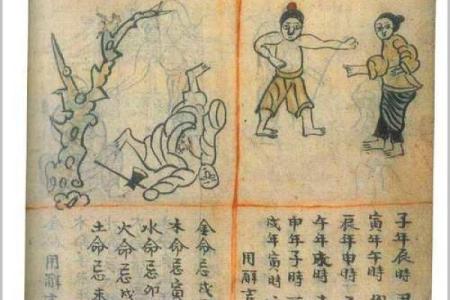 子年辰時
寅年午時
辰年申時
午年戌時
申年子時
戌年寅時
用解吉
金命忌戌
木命忌寅
水命忌卯
火命忌戌
土命忌未
用解吉